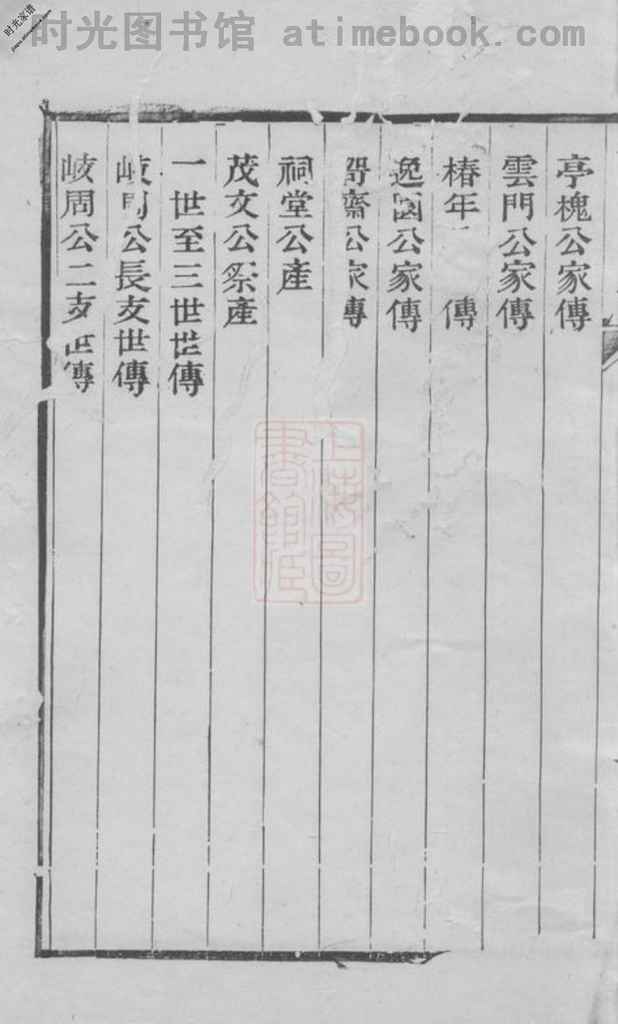 时光图书馆 atimebook.com
时光家谱
亭槐公家傳
雲門公家傳
椿年 傳
逸園公家傳
齋公家傳
祠堂公產
茂文公祭產
一世至三世世傳
岐周公長支世傳
岐周公二支世傳
上海圖
書館藏